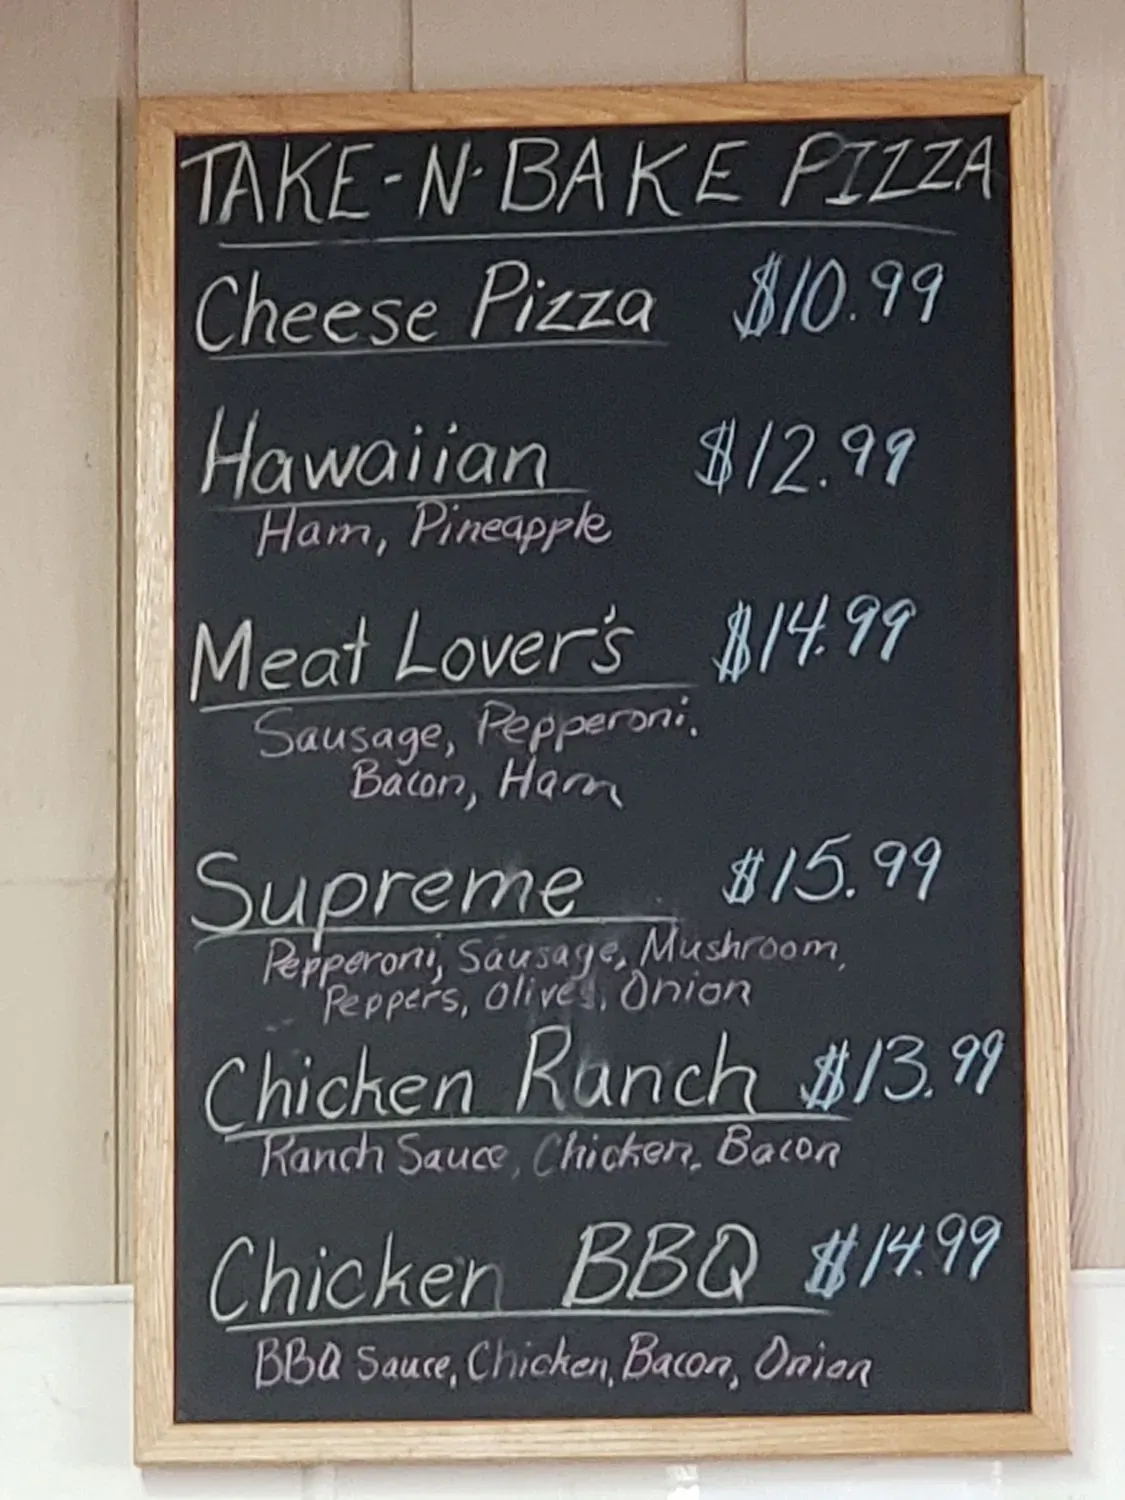 TAKE-N-BAKE PIZZA
Cheese Pizza $10.99
Hawaiian $12.99
Ham, Pineapple
Meat Lover's $14.99
Sausage, Pepperoni,
Bacon, Ham
Supreme $15.99
Pepperoni, Sausage, Mushroom,
Peppers, Olives, Onion
Chicken Ranch $13.99
Ranch Sauce, Chicken, Bacon
Chicken BBQ $14.99
BBQ Sauce, Chicken, Bacon, Onion